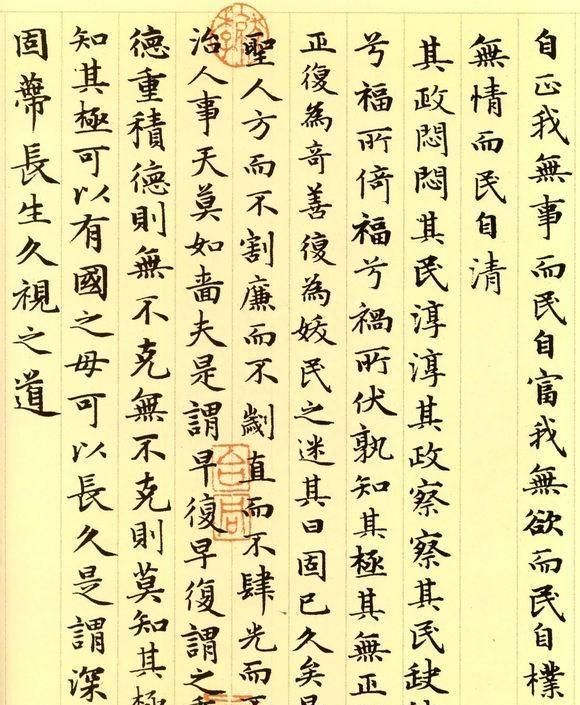 自正我無事而民自富我無欲而民自樸
無情而民自清
其政悶悶其民淳淳其政察察其民缺
兮福所倚福兮禍所伏孰知其極其無正
正復為奇善復為妖民之迷其日固已久矣是
聖人方而不割廉而不劌直而不肆光而不
治人事天莫如嗇夫是謂早復早復謂之
德重積德則無不克無不克則莫知其極
知其極可以有國之母可以長久是謂深
固蔕長生久視之道
合同